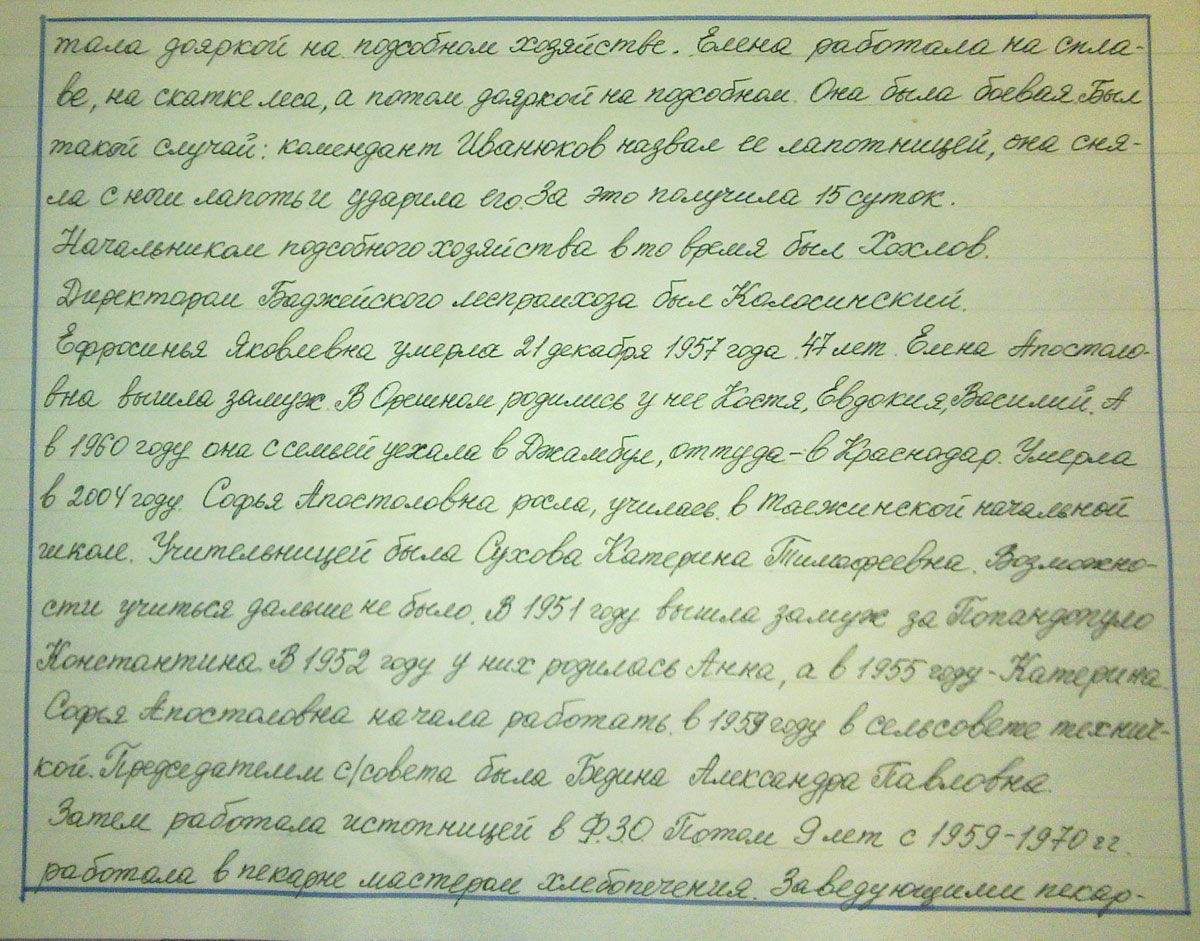 тала дояркой на подсобном хозяйстве. Елена работала на спла-
ве, на скатке леса, а потом дояркой на подсобном. Она была боевая. Был
такой случай: комендант Иванюков назвал ее лапотницей, она сня-
ла с ноги лапоть и ударила его. За это получила 15 суток.
Начальником подсобного хозяйства в то время был Хохлов.
Директором Баджейского леспромхоза был Колосинский.
Ефросинья Яковлевна умерла 21 декабря 1957 года 47 лет. Елена Апостоло-
вна вышла замуж. В Орешном родились у нее Костя, Евдокия, Василий. А
в 1960 году она с семьей уехала в Джамбул, оттуда - в Краснодар. Умерла
в 2004 году. Софья Апостоловна росла, училась в Таежинской начальной
школе. Учительницей была Сухова Катерина Тимофеевна. Возможно-
сти учиться дальше не было. В 1951 году вышла замуж за Попандопуло
Константина. В 1952 году у них родилась Анна, а в 1955 году - Катерина.
Софья Апостоловна начала работать в 1959 году в сельсовете технич-
кой. Председателем с/совета была Бедина Александра Павловна.
Затем работала истопницей в Ф.З.О. Потом 9 лет с 1959-1970 гг.
работала в пекарне мастером хлебопечения. Заведующими пекар-